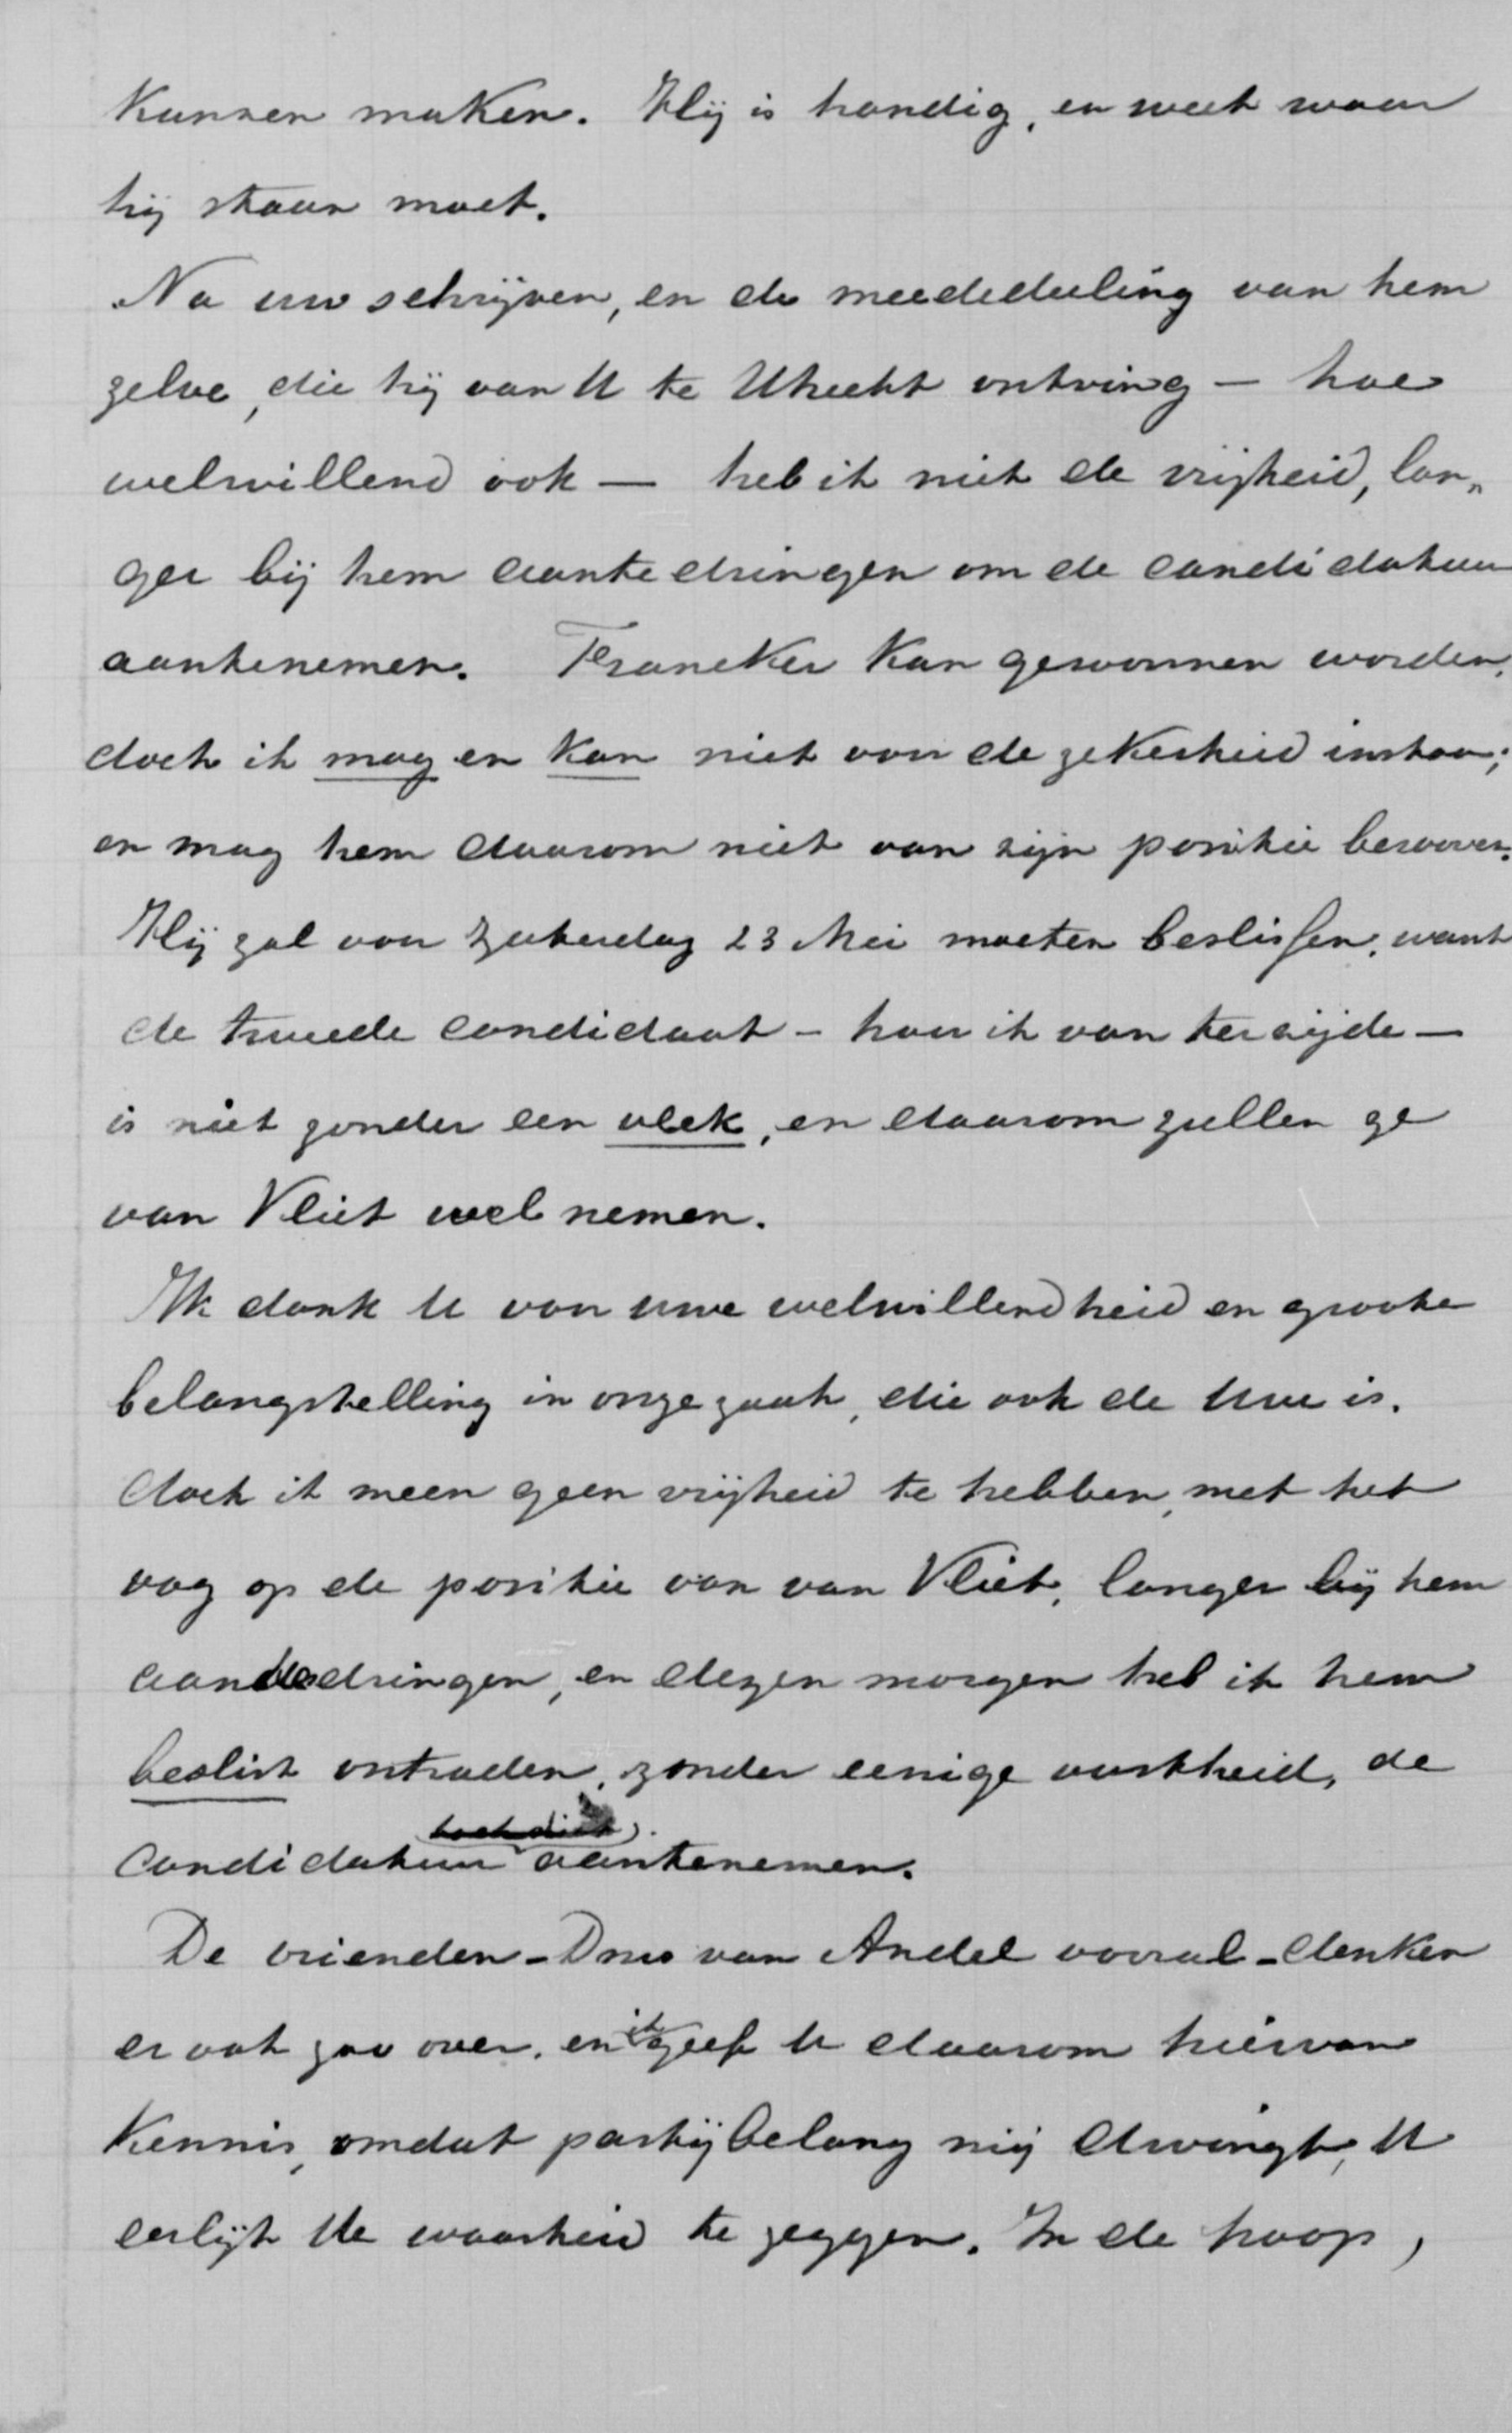 Kansen maken. Hij is handig, en weet waar
hij staan moet.
Na uw schrijven, en de meededeeling van hem
zelve, die hij van U te Utrecht ontving — hoe
welwillend ook — heb ik niet de vrijheid, lan„
ger bij hem aantedringen om de candidatuur
aantenemen. Franeker kan gewonnen worden,
doch ik mag en kan niet voor de zekerheid instaan;
en mag hem daarom niet van zijn positie berooven.
Hij zal voor Zaterdag 23 Mei moeten beslissen, want
de tweede candidaat – hoor ik van terzijde —
is niet zonder een vlek, en daarom zullen ze
van Vliet wel nemen.
Ik dank U voor uwe welwillendheid en groote
belangstelling in onze zaak, die ook de Uwe is.
doch ik meen geen vrijheid te hebben, met het
oog op de positie van van Vliet, langer bij hem
aan dringen, en dezen morgen heb ik hem
beslist ontraden, zonder eenige vastheid, de
candidatuur aantenemen.
De vrienden – Drs van Andel vooral – denken
er ook zoo over, en ik geef U daarom hiervan
Kennis, omdat partijbelang mij dwingt, U
eerlijk de waarheid te zeggen. In de hoop,